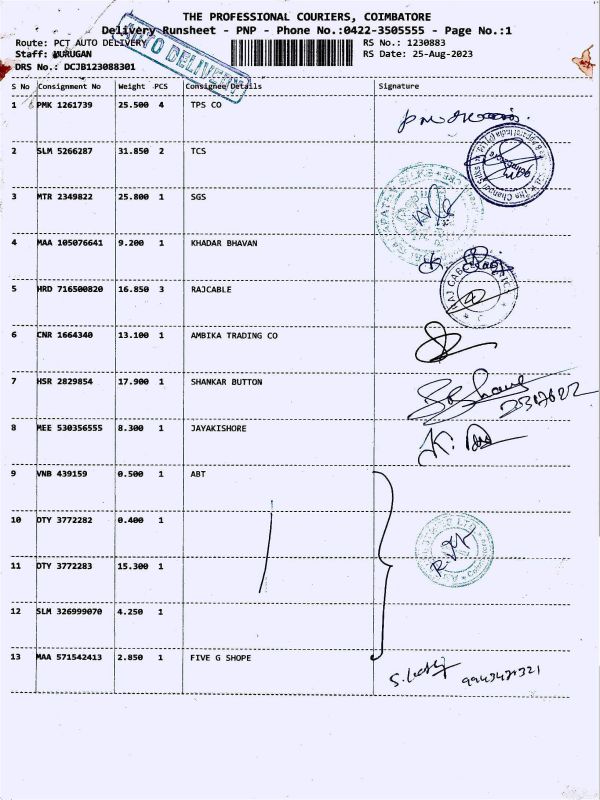 THE PROFESSIONAL COURIERS, COIMBATORE
Delivery Runsheet - PNP - Phone No.:0422-3505555 - Page No.:1
Route: PCT AUTO DELIVERY RS No.: 1230883
Staff: MURUGAN RS Date: 25-Aug-2023
DRS No.: DCJB123088301
AUTO DELIVERY
S No Consignment No Weight PCS Consignee Details Signature
1 PMK 1261739 25.500 4 TPS CO
2 SLM 5266287 31.850 2 TCS
3 MTR 2349822 25.800 1 SGS
4 MAA 105076641 9.200 1 KHADAR BHAVAN
5 HRD 716500820 16.850 3 RAJCABLE
6 CNR 1664340 13.100 1 AMBIKA TRADING CO
7 HSR 2829854 17.900 1 SHANKAR BUTTON
8 MEE 530356555 8.300 1 JAYAKISHORE
9 VNB 439159 0.500 1 ABT
10 DTY 3772282 0.400 1
11 DTY 3772283 15.300 1
12 SLM 326999070 4.250 1
13 MAA 571542413 2.850 1 FIVE G SHOPE